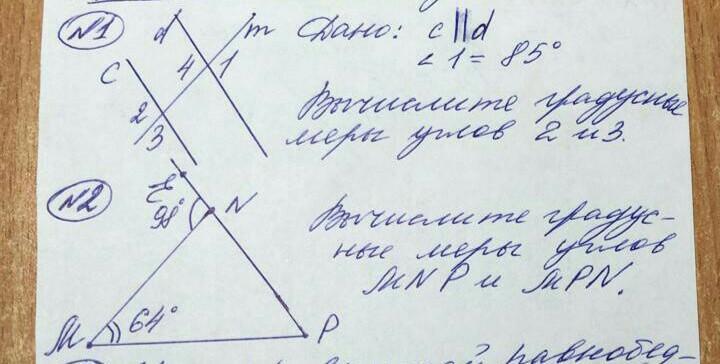 №1 d m Дано: c || d
∠1 = 85°
c 4 1
2
3
Вычислите градусные
меры углов 2 и 3.
№2
E
98° N
Вычислите градус-
ные меры углов
MNP и MPN.
M 64° P
равнобед-